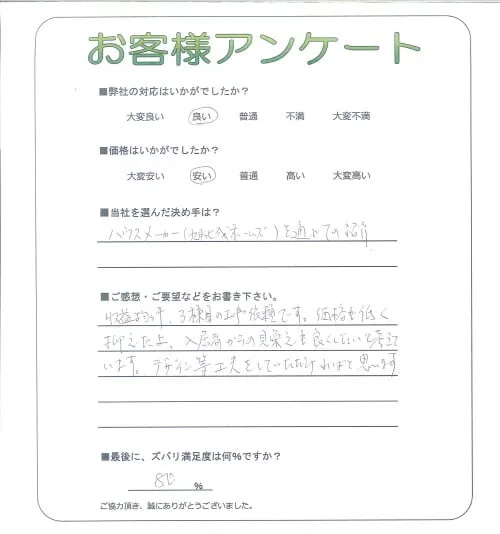 お客様アンケート
■弊社の対応はいかがでしたか？
大変良い 良い 普通 不満 大変不満
■価格はいかがでしたか？
大変安い 安い 普通 高い 大変高い
■当社を選んだ決め手は？
ハウスメーカー(旭化成ホームズ)を通じての紹介
■ご感想・ご要望などをお書き下さい。
3棟目の工事依頼です。価格を低く
抑えた上、入居者からの見栄えも良くしたいと考えて
います。デザイン等工夫をしていただければと思います
■最後に、ズバリ満足度は何％ですか？
80 ％
ご協力頂き、誠にありがとうございました。